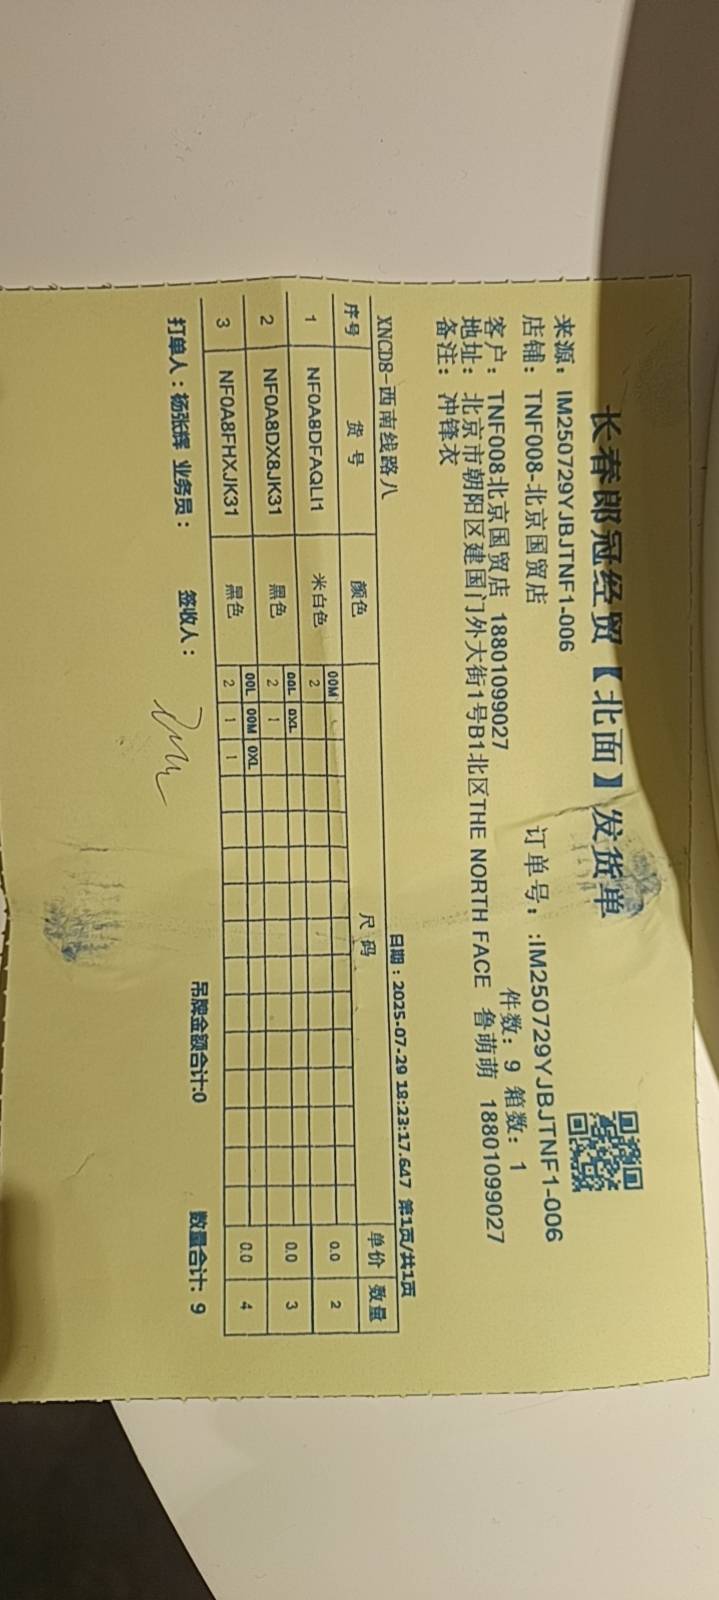 长春郎冠经贸【北面】发货单
来源：IM250729YJBJTNF1-006 订单号：:IM250729YJBJTNF1-006
店铺：TNF008-北京国贸店 件数：9 箱数：1
客户：TNF008北京国贸店 18801099027
地址：北京市朝阳区建国门外大街1号B1北区THE NORTH FACE 鲁萌萌 18801099027
备注：冲锋衣
日期：2025-07-29 18:23:17.647 第1页/共1页
XNCD8-西南线路八
序号 货号 颜色 尺码 单价 数量
00M
1 NF0A8DFAQLI1 米白色 2 0.0 2
00L 0XL
2 NF0A8DX8JK31 黑色 2 1 0.0 3
00L 00M 0XL
3 NF0A8FHXJK31 黑色 2 1 1 0.0 4
打单人：杨张辉 业务员： 签收人： 吊牌金额合计:0 数量合计: 9